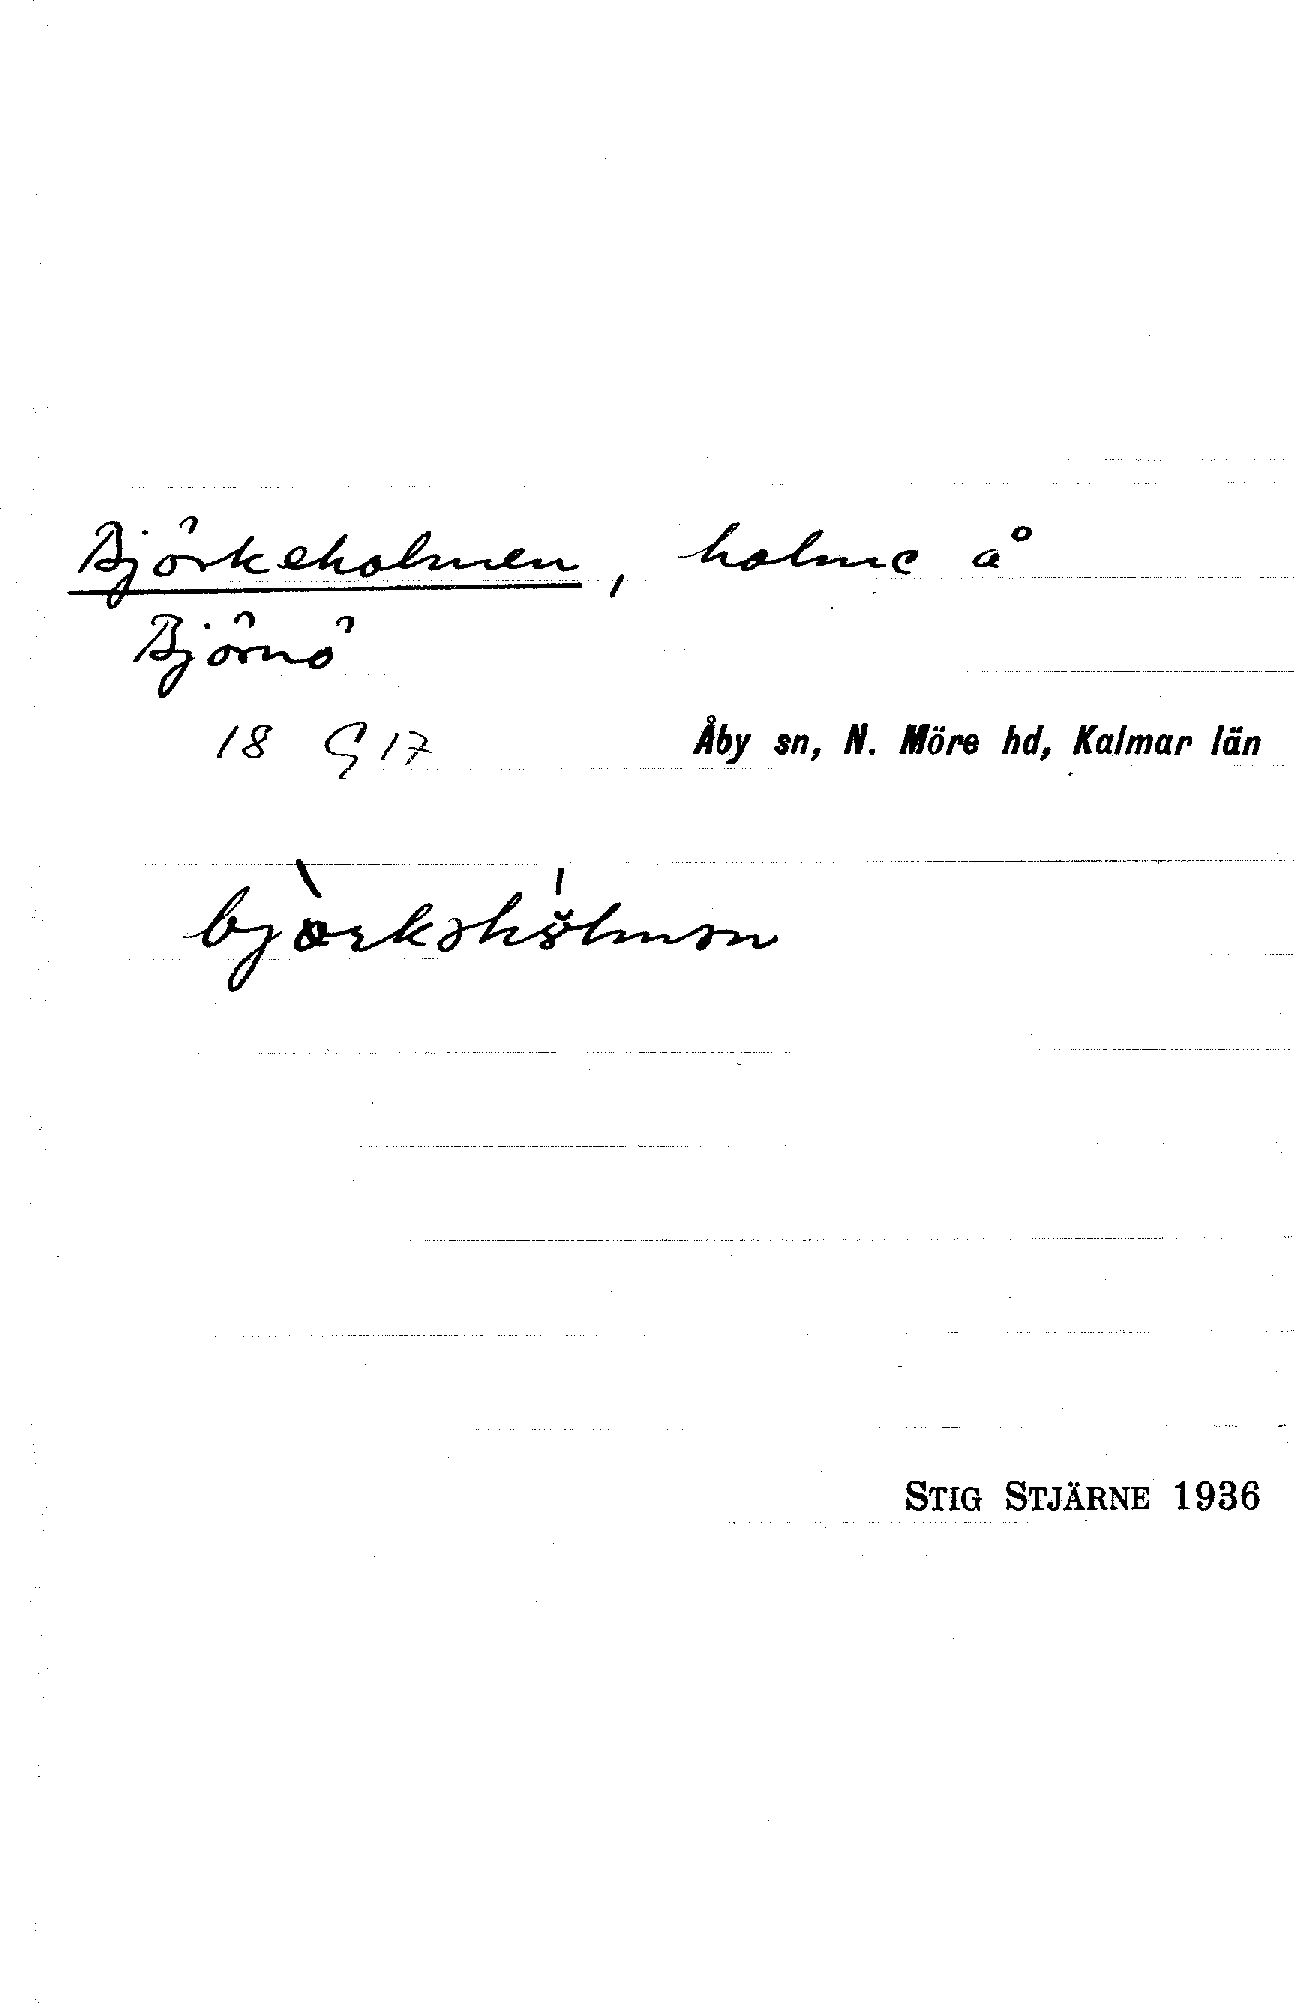 Björkeholmen, holme å
Björnö
18 G 17 Åby sn, N. Möre hd, Kalmar län
STIG STJÄRNE 1936